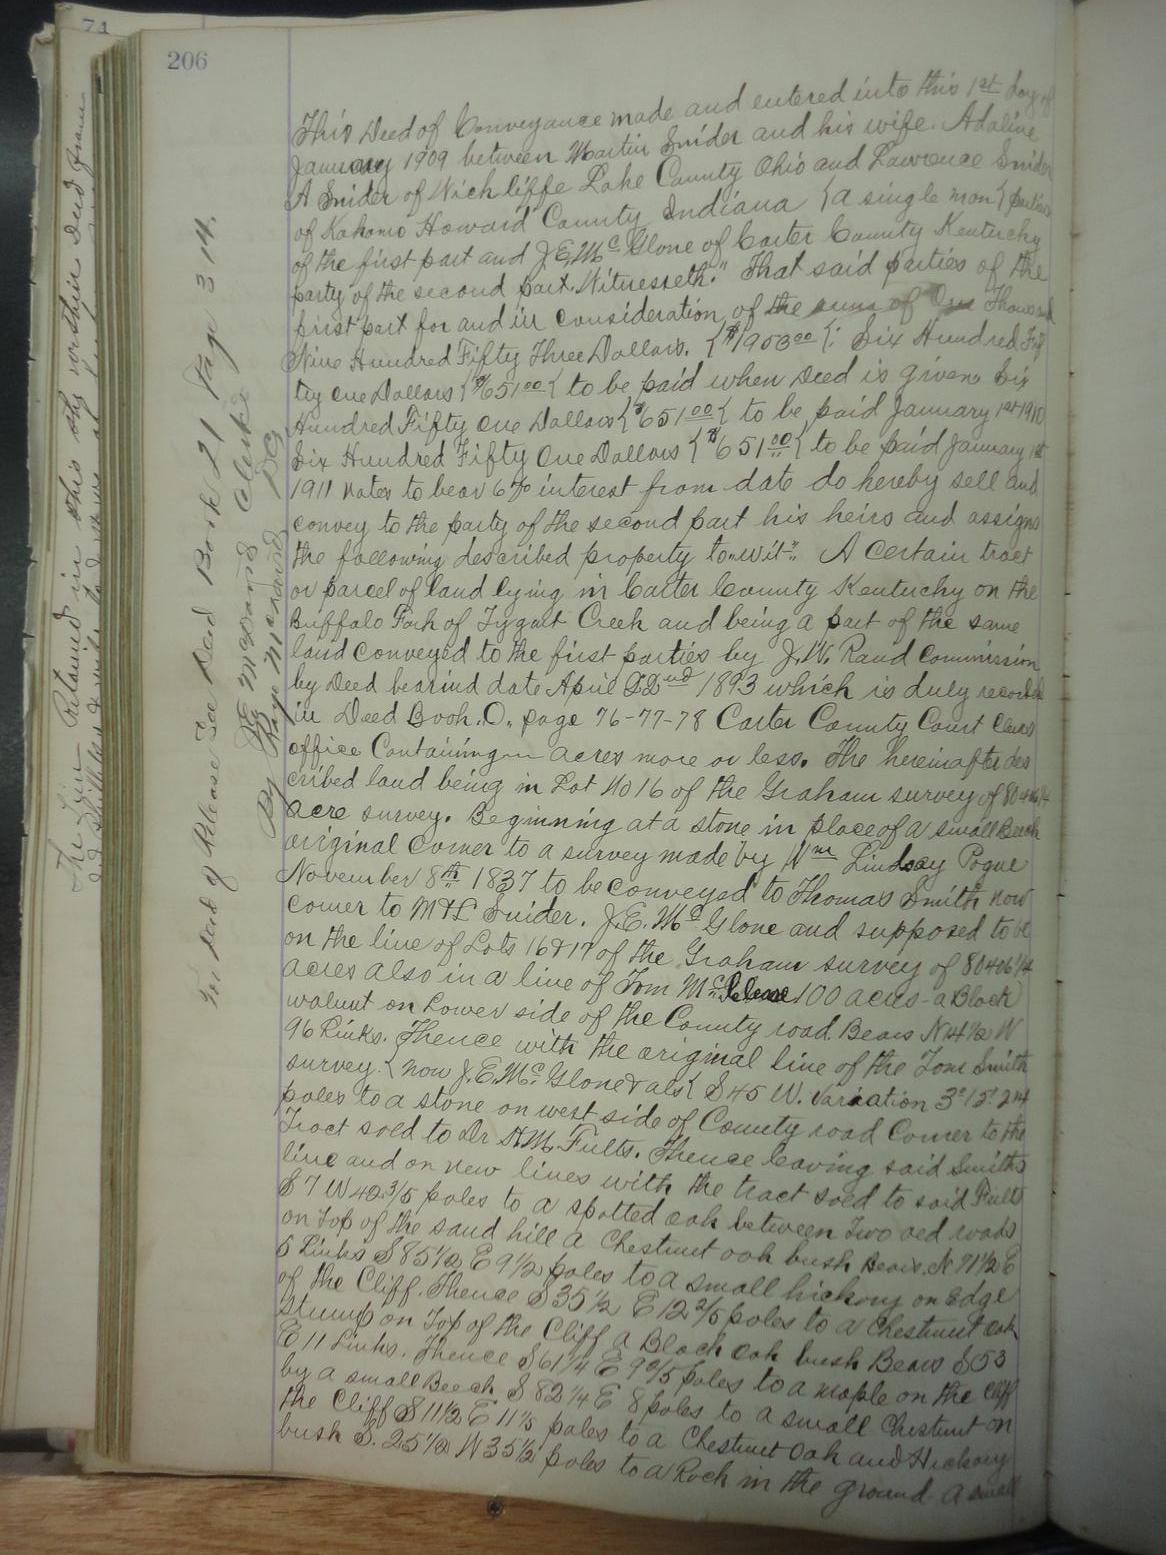 74
206
This Deed of Conveyance made and entered into this 1st day of
January 1909 between Martin Snider and his wife. Adaline
A Snider of Wichliffe Lake County Ohio and Lawrence Snider
of Kokomo Howard County Indiana {a single man{ parties
of the first part and J.E. Mc Glone of Carter County Kentucky
party of the second part. Witnesseth." That said parties of the
first part for and in consideration of the sum of One Thousand
Nine Hundred Fifty Three Dollars. {$1953 00{: Six Hundred Fif
ty One Dollars {$651 00{ to be paid when Deed is given Six
Hundred Fifty One Dollars {$651 00{ to be paid January 1st 1910
Six Hundred Fifty One Dollars {$651 00{ to be paid January 1st
1911 notes to bear 6% interest from date do hereby sell and
convey to the party of the second part his heirs and assigns
the following described property to-wit": A Certain tract
or parcel of land lying in Carter County Kentucky on the
Buffalo Fork of Tygart Creek and being a part of the same
land conveyed to the first parties by J.W. Raud Commission
by Deed bearind date April 22nd 1893 which is duly recorded
in Deed Book. O. page 76-77-78 Carter County Court Clerks
office Containing acres more or less. The hereinafter des
cribed land being in Lot No 16 of the Graham survey of 80406 1/4
acre survey. Beginning at a stone in place of a small Beech
original Corner to a survey made by Wm Lindsay Pogue
November 8th 1837 to be conveyed to Thomas Smith now
comer to M & L Snider. J.E. Mc Glone and supposed to be
on the line of Lots 16 & 17 of the Graham survey of 80406 1/4
acres also in a line of Tom Mc Glone 100 acres - a Black
walnut on Lower side of the County road. Bears N 14 1/2 W
96 Links. Thence with the original line of the Tom Smith
survey. {now J.E. Mc Glone & als{ S 45 W. Variation 3° 15' 24
poles to a stone on west side of County road Corner to the
Tract sold to Dr H.M. Fults. Thence leaving said Smiths
line and on new lines with the tract sold to said Fults
S 7 W 42 3/5 poles to a spotted oak between Two oed roads
on Top of the sand hill a Chestnut oak bush Bears. N 71 1/2 E
5 Links S 85 1/2 E 9 1/2 poles to a small hickory on Edge
of the Cliff. Thence S 35 1/2 E 12 2/5 poles to a Chestnut oak
Stump on Top of the Cliff a Black oak bush Bears S 53
E 11 Links. Thence S 61 1/4 E poles to a maple on the Cliff
by a small Beech S 82 1/4 E 8 poles to a small Chestnut on
the Cliff S 11 1/2 E 11 poles to a Chestnut Oak and Hickory
bush S. 25 1/2 W 35 1/2 poles to a Rock in the ground a small
For deed of Release See Deed Book 21 Page 314.
Clerk
By DC
The Lien Retained in this